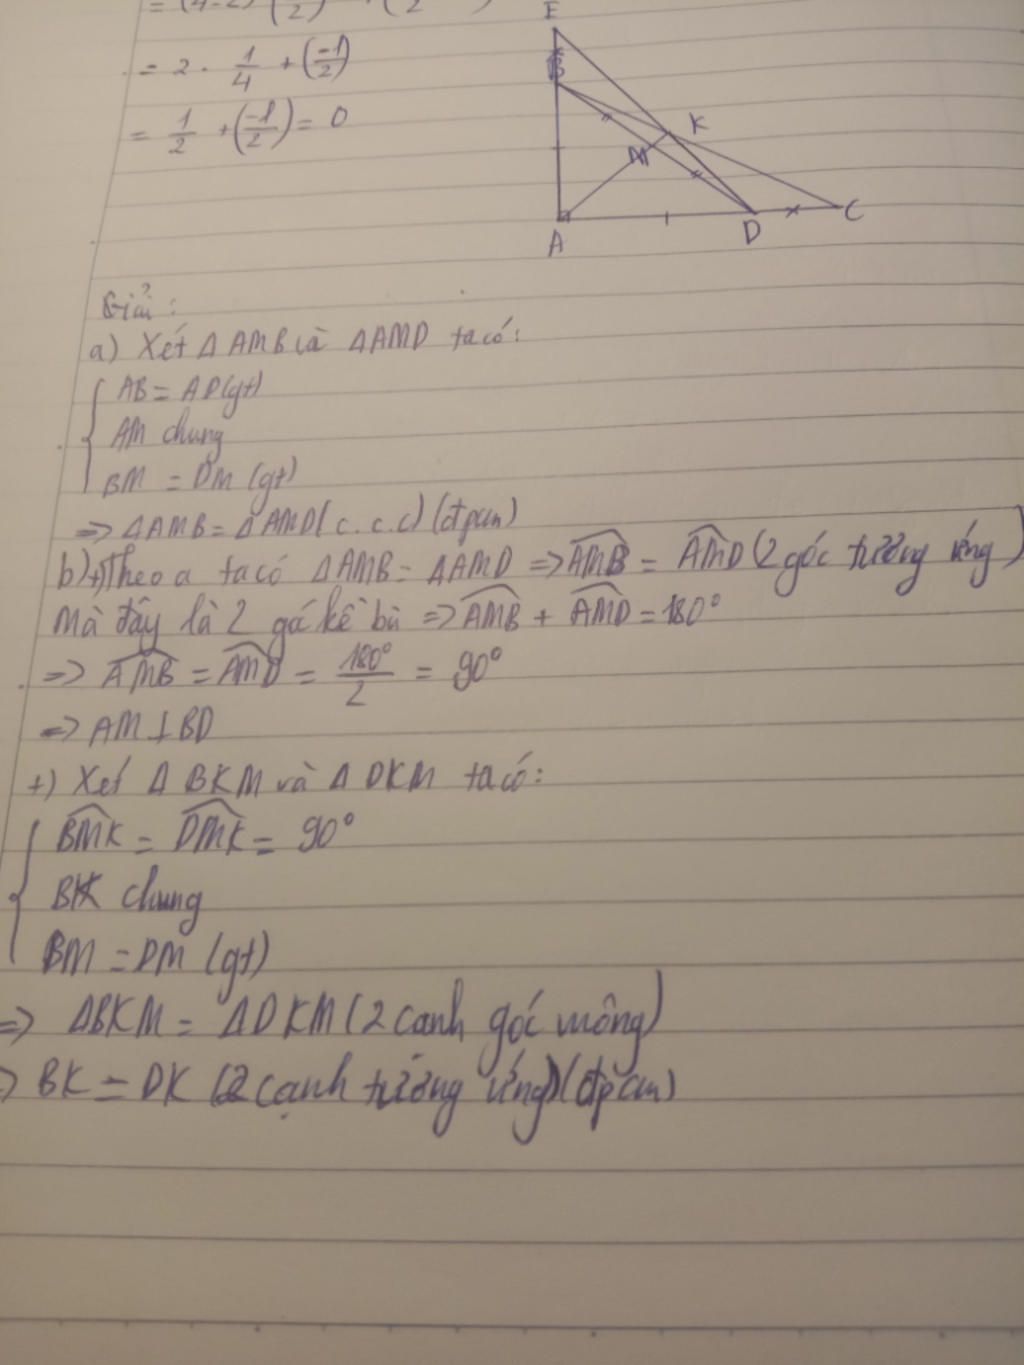 = 2 . 1/4 + (-1/2)
= 1/2 + (-1/2) = 0
E
B
K
M
A
D
C
Giải:
a) Xét Δ AMB và ΔAMD ta có:
AB = AD (gt)
AM chung
BM = DM (gt)
=> ΔAMB = ΔAMD (c.c.c) (đpcm)
b) +) Theo a ta có ΔAMB = ΔAMD => AMB = AMD (2 góc tương ứng)
Mà đây là 2 góc kề bù => AMB + AMD = 180°
=> AMB = AMD = 180°/2 = 90°
=> AM ⊥ BD
+) Xét Δ BKM và Δ DKM ta có:
BMK = DMK = 90°
chung
BM = DM (gt)
=> ΔBKM = ΔDKM (2 cạnh góc vuông)
=> BK = DK (2 cạnh tương ứng) (đpcm)